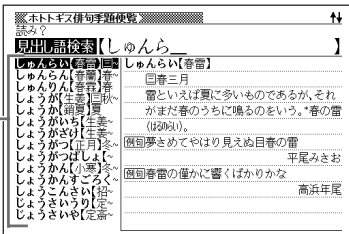 ホトトギス俳句季題便覧
読み?
見出し語検索【しゅんら__ 】
しゅんらい【春雷】囙~
しゅんらん【春蘭】春~
しゅんりん【春霖】春
しょうが【生姜】囙秋~
しょうか【銷夏】夏
しょうがいち【生姜~
しょうがざけ【生姜~
しょうがつ【正月】冬~
しょうがつばしょ【~
しょうかん【小寒】冬~
しょうかんすごろく~
しょうこんさい【招~
じょうさいうり【定~
じょうさいや【定斎~
しゅんらい【春雷】
囙春三月
雷といえば夏に多いものであるが、それ
がまだ春のうちに鳴るのをいう。*春の雷
(はるのらい)。
例句夢さめてやはり見えぬ目春の雷
平尾みさお
例句春雷の僅かに響くばかりかな
高浜年尾